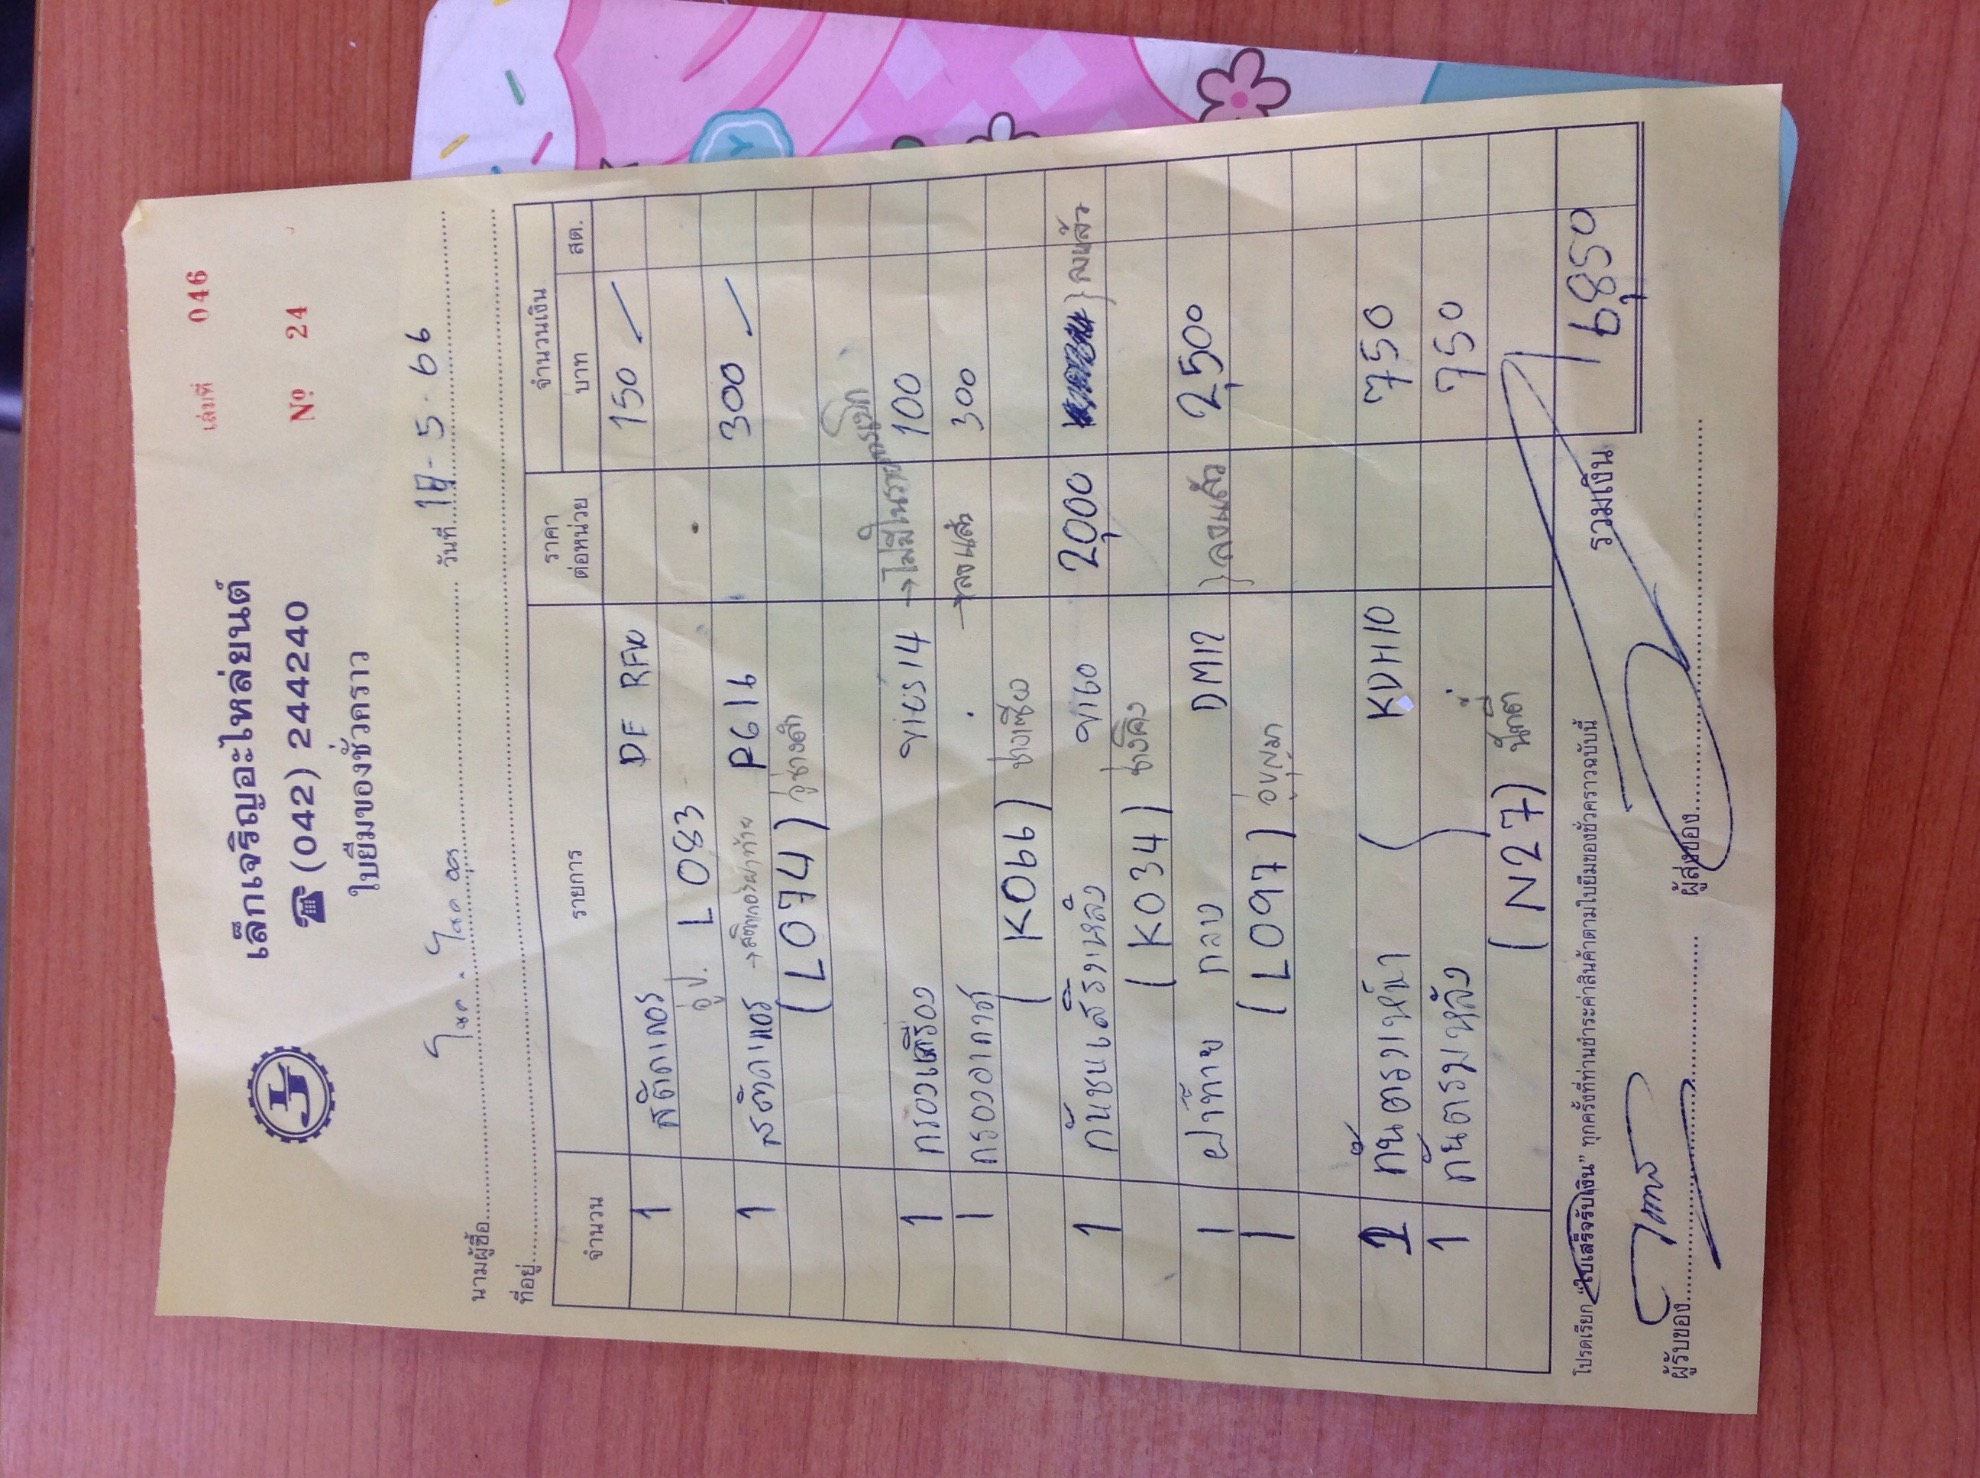 เล่มที่ 046
เล็กเจริญอะไหล่ยนต์
☎ (042) 244240
Nº 24
ใบยืมของชั่วคราว
วันที่ 17-5-66
นามผู้ซื้อ
ที่อยู่
จำนวน รายการ ราคาต่อหน่วย จำนวนเงิน บาท สต.
1 สติกเกอร์ DF RFW 150
L 083
1 สติกเกอร์ P616 300
(L074) อู่ช่างดำ
→ไม่มีในรายการเบิก
1 กรองเครื่อง 14 100
1 กรองอากาศ → ลงแล้ว 300
(K066)
1 กันชนเสริมหลัง vigo 2,000 } ลงแล้ว
(K034)
1 ฝาท้าย กลาง DM17 2,500
1 (L097) อู่บุญมา } ลงแล้ว
กันตรงหน้า KDH10 750
1 กันตรงหลัง 750
(N27)
รวมเงิน 6,850
โปรดเรียก "ใบเสร็จรับเงิน" ทุกครั้งที่ท่านชำระค่าสินค้าตามใบยืมของชั่วคราวฉบับนี้
ผู้รับของ ผู้ส่งของ